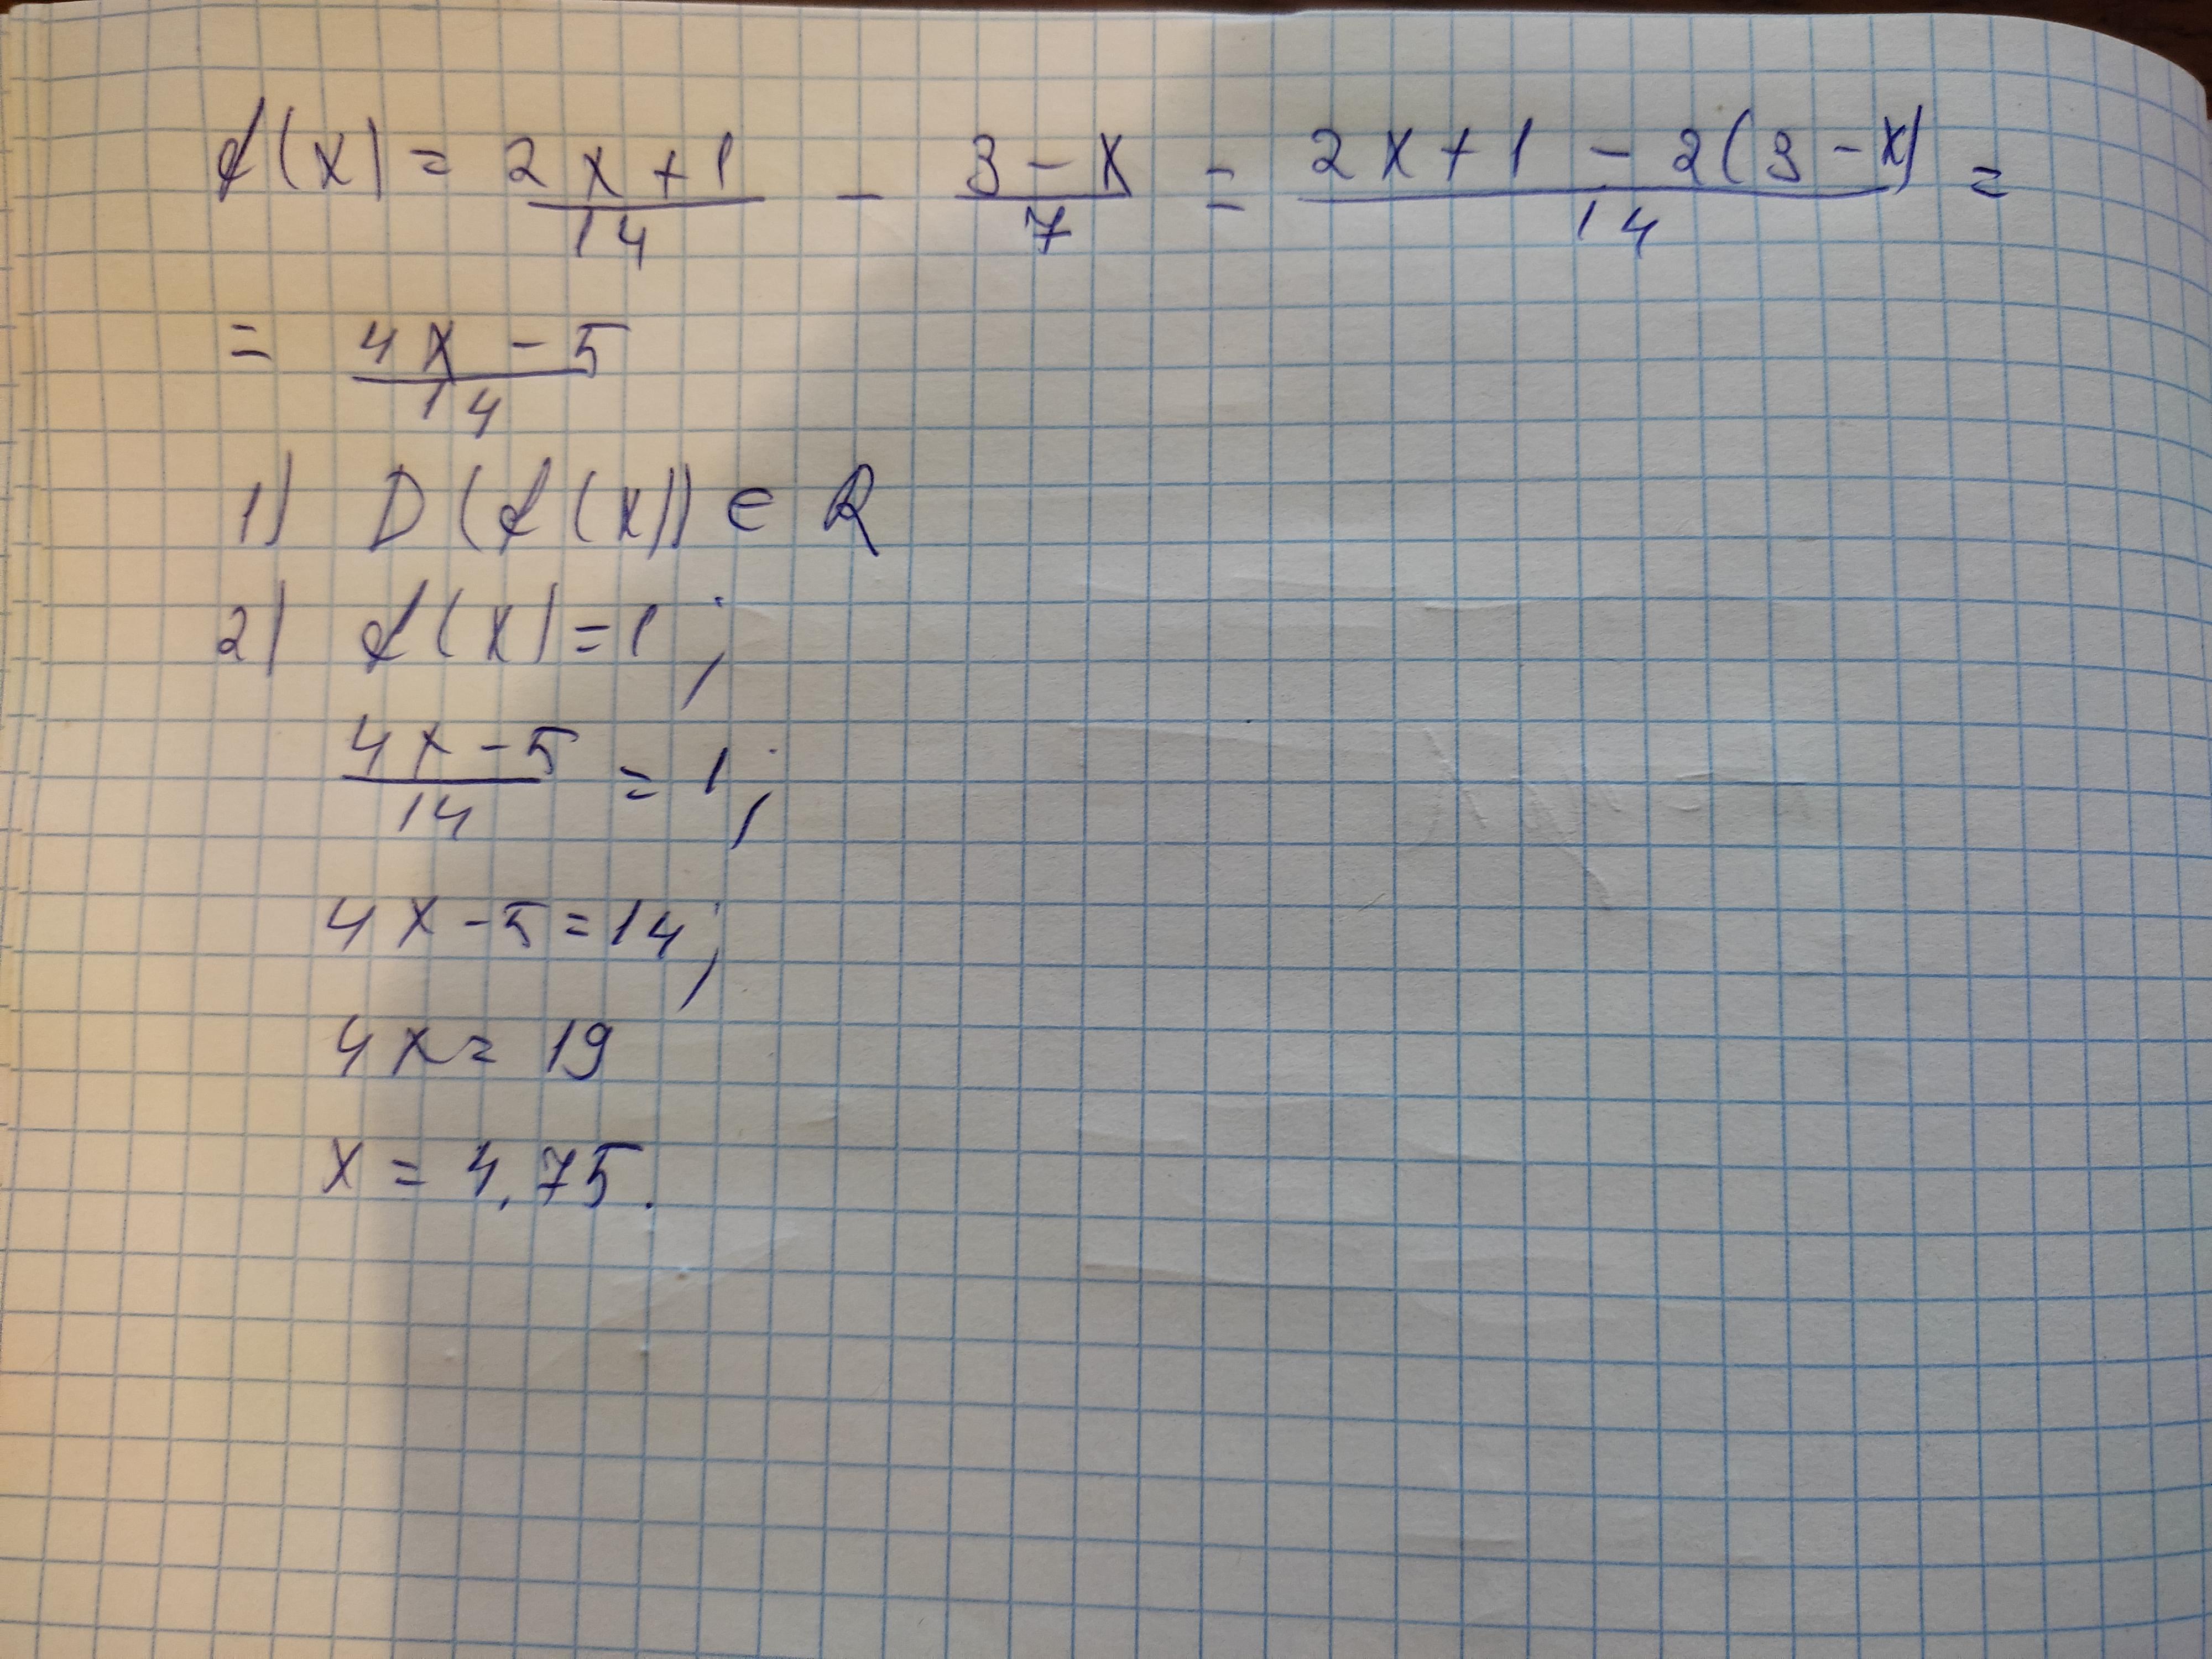 f(x) = (2x+1)/14 - (3-x)/7 = (2x+1-2(3-x))/14 =
= (4x-5)/14
1) D(f(x)) ∈ R
2) f(x)=1;
(4x-5)/14 = 1;
4x-5=14;
4x=19
x=4,75.